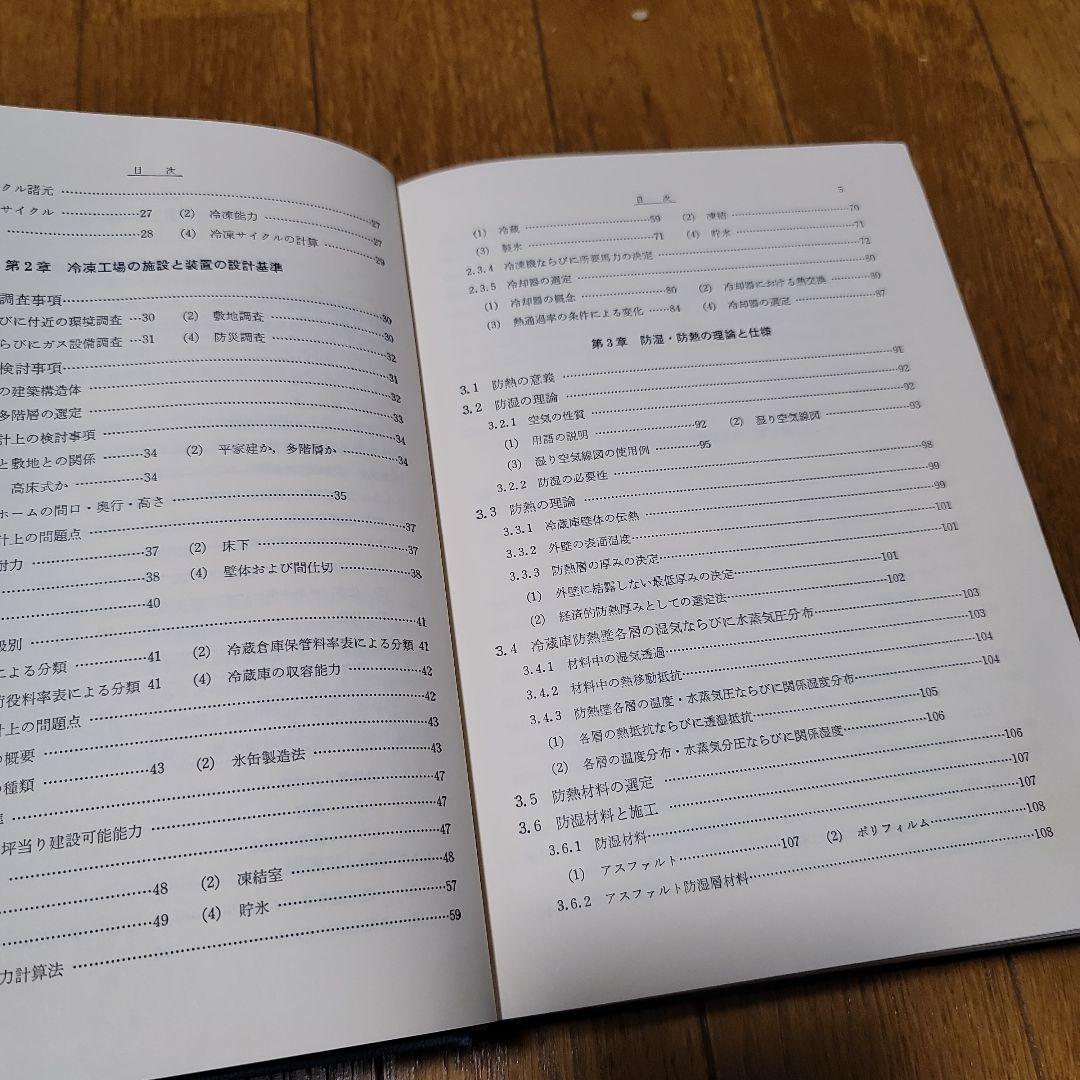 目　次
クル諸元 ……27
サイクル ……27　(2)　冷凍能力 ……27
……28　(4)　冷凍サイクルの計算 ……29
第2章　冷凍工場の施設と装置の設計基準
調査事項……30
びに付近の環境調査 …30　(2)　敷地調査 ……30
らびにガス設備調査 …31　(4)　防災調査 ……32
検討事項……31
の建築構造体 ……32
多階層の選定 ……33
計上の検討事項 ……34
と敷地との関係 ……34　(2)　平家建か，多階層か ……34
高床式か ……34
ホームの間口・奥行・高さ ……35
計上の問題点 ……37
耐力 ……37　(2)　床下 ……37
……38　(4)　壁体および間仕切 ……38
……40
級別 ……41
による分類 ……41　(2)　冷蔵倉庫保管料率表による分類 41
荷役料率表による分類 41　(4)　冷蔵庫の収容能力 ……42
計上の問題点 ……42
の概要 ……43
の種類 ……43　(2)　氷缶製造法 ……43
……47
坪当り建設可能能力 ……47
……47
……48　(2)　凍結室 ……48
……49　(4)　貯氷 ……57
力計算法 ……59
目　次　5
(1)　冷蔵 ……59　(2)　凍結 ……70
(3)　製氷 ……71　(4)　貯氷 ……71
2.3.4　冷凍機ならびに所要馬力の決定 ……72
2.3.5　冷却器の選定 ……80
(1)　冷却器の概念 ……80　(2)　冷却器における熱交換 ……80
(3)　熱通過率の条件による変化 ……84　(4)　冷却器の選定 ……87
第3章　防湿・防熱の理論と仕様
3.1　防熱の意義 ……91
3.2　防湿の理論 ……92
3.2.1　空気の性質 ……92
(1)　用語の説明 ……92　(2)　湿り空気線図 ……93
(3)　湿り空気線図の使用例 ……95
3.2.2　防湿の必要性 ……98
3.3　防熱の理論 ……99
3.3.1　冷蔵庫壁体の伝熱 ……99
3.3.2　外壁の表面温度 ……101
3.3.3　防熱層の厚みの決定 ……101
(1)　外壁に結露しない最低厚みの決定 ……101
(2)　経済的防熱厚みとしての選定法 ……102
3.4　冷蔵庫防熱壁各層の湿気ならびに水蒸気圧分布 ……103
3.4.1　材料中の湿気透過 ……103
3.4.2　材料中の熱移動抵抗 ……104
3.4.3　防熱壁各層の温度・水蒸気圧ならびに関係湿度分布 ……104
(1)　各層の熱抵抗ならびに透湿抵抗 ……105
(2)　各層の温度分布・水蒸気分圧ならびに関係湿度 ……106
3.5　防熱材料の選定 ……106
3.6　防湿材料と施工 ……107
3.6.1　防湿材料 ……107
(1)　アスファルト ……107　(2)　ポリフィルム ……108
3.6.2　アスファルト防湿層材料 ……108